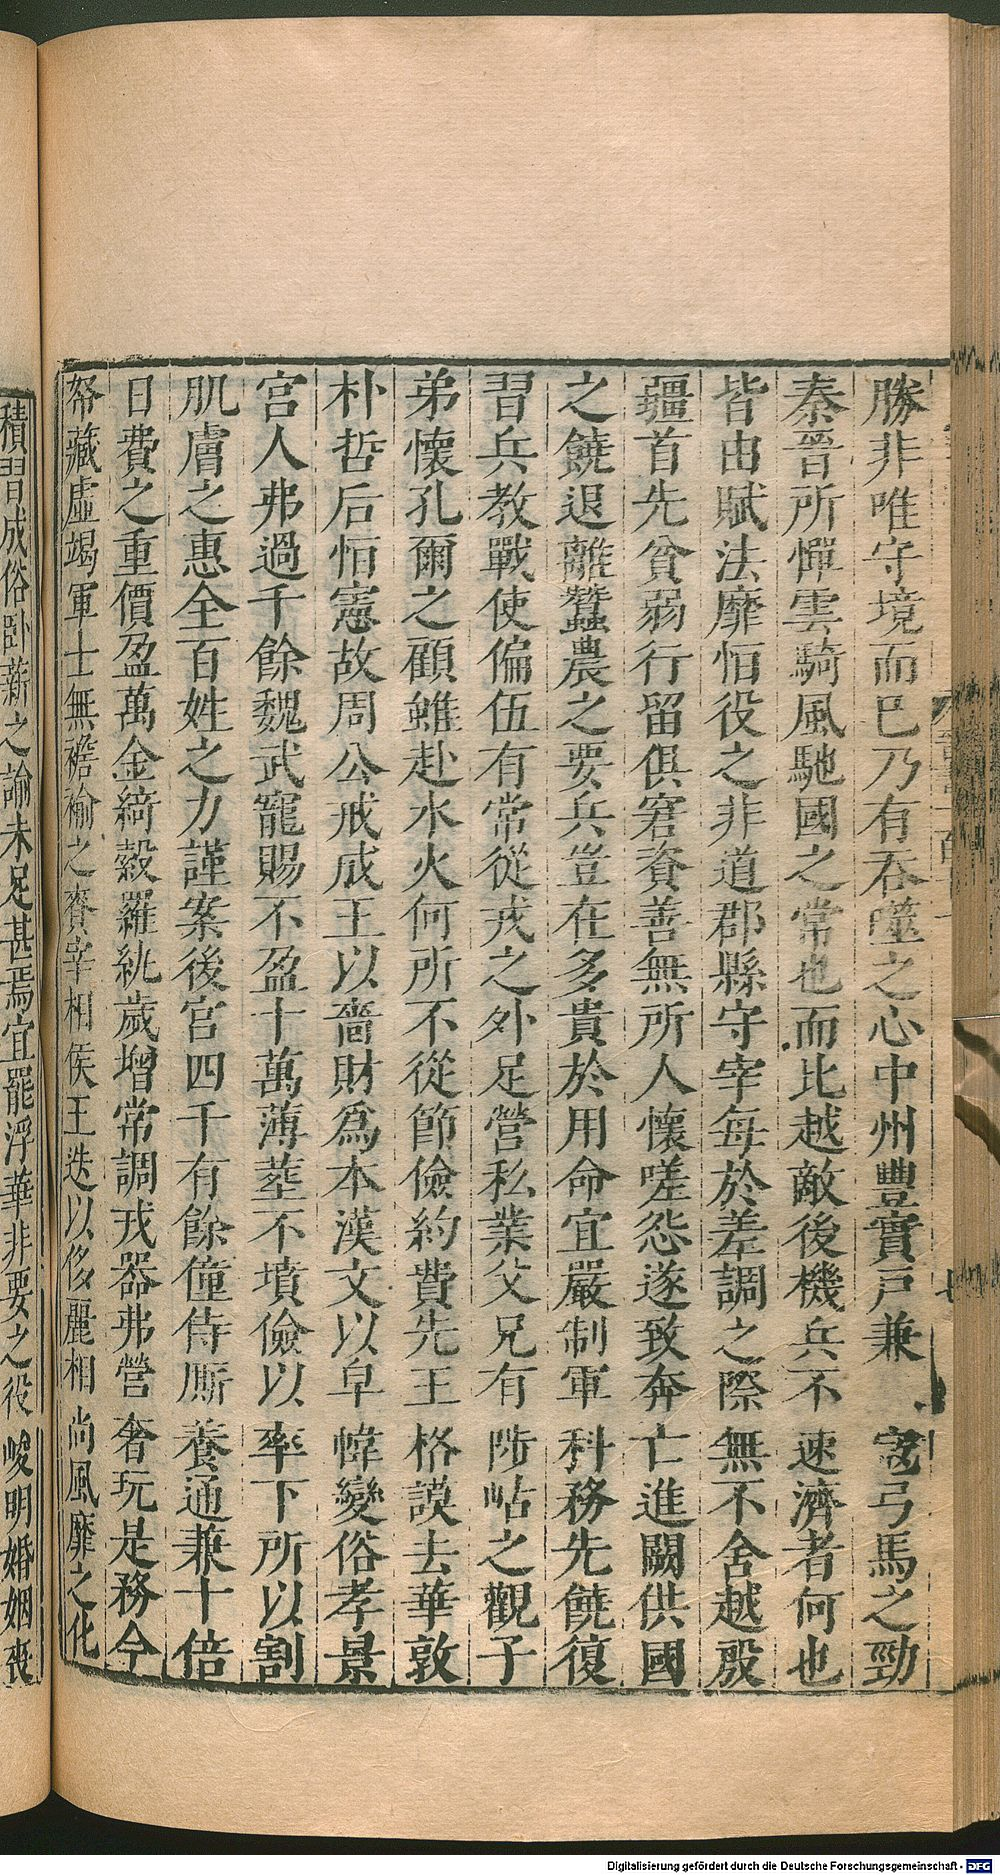 勝非唯守境而巳乃有吞噬之心中州豐實戸兼 弓馬之勁
秦晉所憚雲騎風馳國之常也而比越敵後機兵不速濟者何也
皆由賦法靡恒役之非道郡縣守宰每於差調之際無不舍越殷
疆首先貧弱行留俱窘資善無所人懷嗟怨遂致奔亡進闕供國
之饒退離蠶農之要兵豈在多貴於用命宜嚴制軍科務先饒復
習兵教戰使偏伍有常從戎之外足營私業父兄有陟岵之觀子
弟懷孔爾之顧雖赴水火何所不從節儉約費先王格謨去華敦
朴哲后恒憲故周公戒成王以嗇財爲本漢文以皁幃變俗孝景
宮人弗過千餘魏武寵賜不盈十萬薄葬不墳儉以率下所以割
肌膚之惠全百姓之力謹案後宮四千有餘僮侍厮養通兼十倍
日費之重價盈萬金綺縠羅紈歲增常調戎器弗營奢玩是務今
帑藏虛竭軍士無襜褕之賚宰相侯王迭以侈麗相尚風靡之化
積習成俗臥薪之諭未足甚焉宜罷浮華非要之役峻明婚姻喪
Digitalisierung gefördert durch die Deutsche Forschungsgemeinschaft - DFG